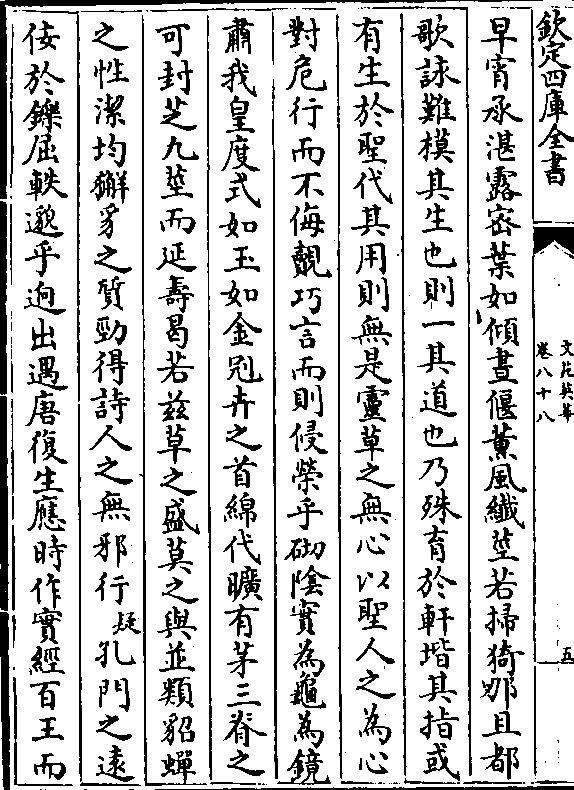 欽定四庫全書
文苑英華
卷八十八
五
早宵承湛露密葉如傾晝偃薰風纖莖若掃猗那且都
歌詠難模其生也則一其道也乃殊育於軒堦其指或
有生於聖代其用則無是靈草之無心以聖人之為心
對危行而不侮覿巧言而則侵榮乎砌陰實為龜為鏡
肅我皇度式如玉如金冠卉之首綿代曠有茅三脊之
可封芝九莖而延壽曷若兹草之盛莫之與並類貂蟬
之性潔均獬豸之質勁得詩人之無邪行疑孔門之遠
佞於鑠屈軼邈乎逈出遇唐復生應時作實經百王而